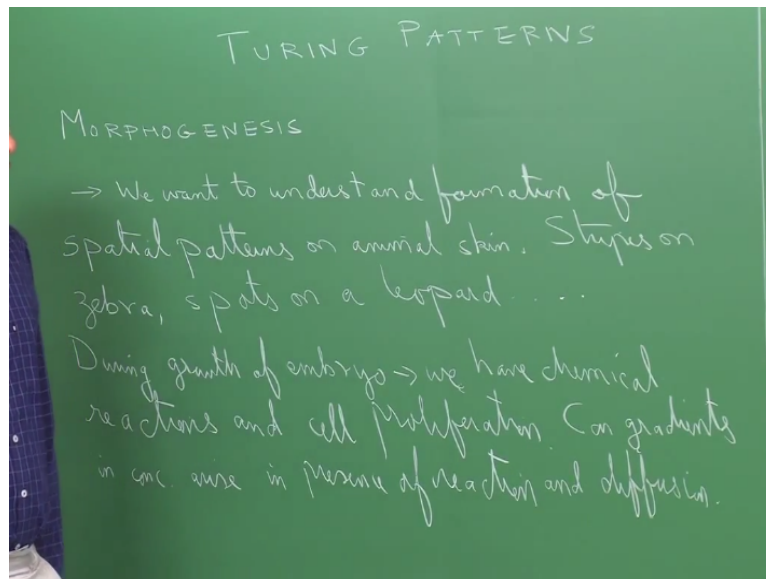 TURING PATTERNS
MORPHOGENESIS
→ We want to understand formation of
spatial patterns on animal skin. Stripes on
zebra, spots on a leopard .....
During growth of embryo → we have chemical
reactions and cell proliferation Can gradients
in conc. arise in presence of reaction and diffusion.